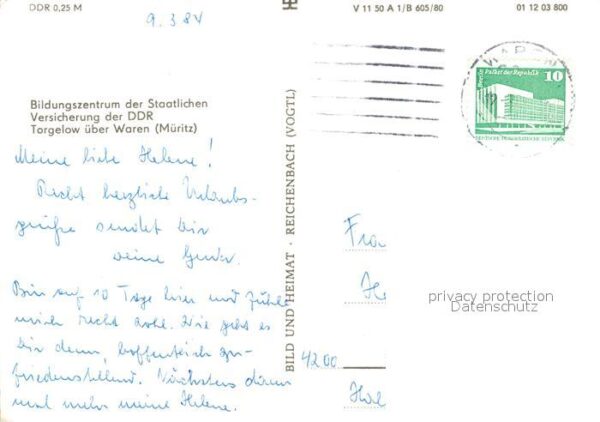 DDR 0,25 M
V 11 50 A 1/B 605/80
01 12 03 800
9. 3 84
Bildungszentrum der Staatlichen
Versicherung der DDR
Torgelow über Waren (Müritz)
Meine liebe Helene!
Recht herzliche Urlaubs-
grüße sendet Dir
Deine
Bin auf 10 Tage hier und fühle
mich recht wohl. Wie geht es
Dir denn, hoffentlich zu-
friedenstellend. Nächstens dann
mal mehr meine Helene.
BILD UND HEIMAT · REICHENBACH (VOGTL)
Palast der Republik
10
Frau
He
4200
Hal
privacy protection
Datenschutz